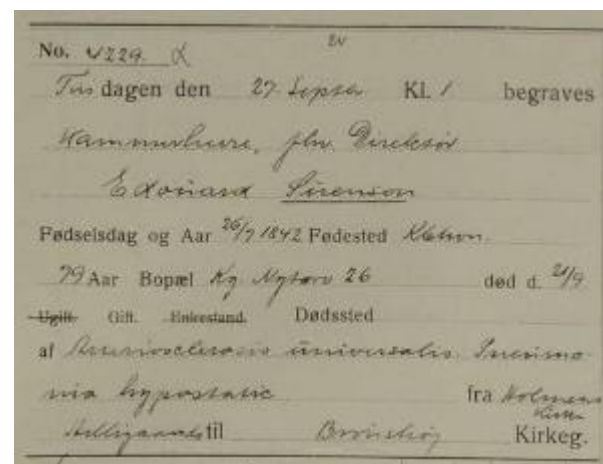 No. 4229. L
Tirsdagen den 27 Septbr Kl. 1 begraves
Kammerherre, fhv. Direktør
Edouard Sørenson
Fødselsdag og Aar 26/7 1842 Fødested Kbhvn.
79 Aar Bopæl Kg. Nytorv 26 død d. 21/9
Ugift. Gift. Enkestand. Dødssted
af Arteriosclerosis universalis. Pneumo-
nia hypostatic
fra Holmens
Kirke
til Brønshøj Kirkeg.